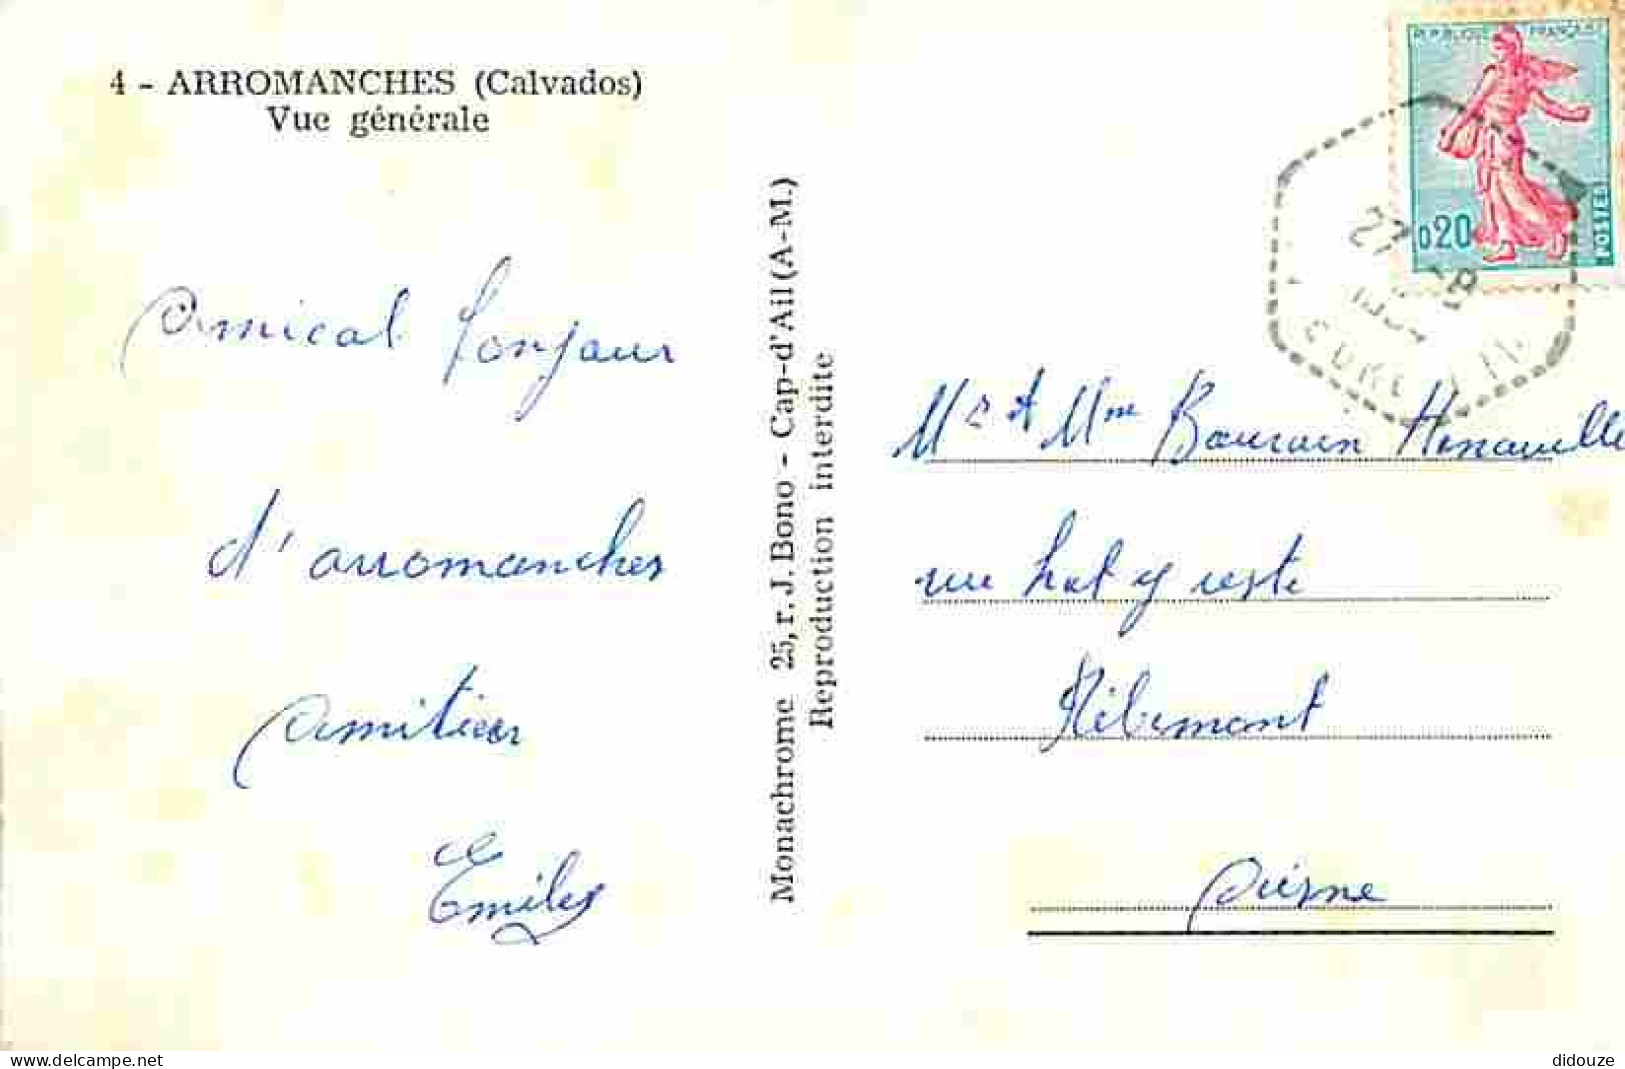 4 - ARROMANCHES (Calvados)
Vue générale
Amical bonjour
d'arromanches
amitier
Emiles
Monachrome 25, r. J. Bono - Cap-d'Ail (A-M.)
Reproduction interdite
REPUBLIQUE FRANÇAISE
0,20
POSTES
27
Mr et Mme
rue
Ribemont
Aisne
www.delcampe.net
didouze